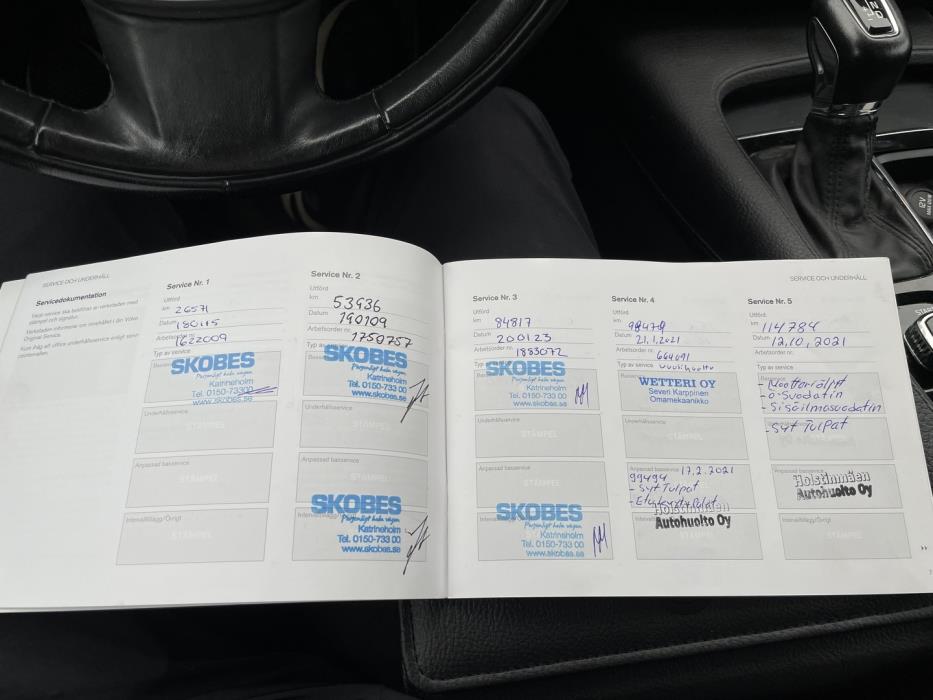 SERVICE OCH UNDERHÅLL
Servicedokumentation
Service Nr. 1
Utförd
km 26571
Datum 180115
Arbetsorder nr. 1622009
Typ av service
SKOBES
Personligt hela vägen
Katrineholm
Tel. 0150-73300
www.skobes.se
Underhållsservice
STÄMPEL
Anpassad basservice
STÄMPEL
Intervalltillägg/Övrigt
Service Nr. 2
Utförd
km 53936
Datum 190109
Arbetsorder nr. 1750757
Typ av
SKOBES
Personligt hela vägen
Katrineholm
Tel. 0150-733 00
www.skobes.se
Underhållsservice
STÄMPEL
Anpassad basservice
SKOBES
Personligt hela vägen
Katrineholm
Tel. 0150-733 00
www.skobes.se
Service Nr. 3
Utförd
km 84817
Datum 200123
Arbetsorder nr. 1883072
SKOBES
Personligt hela vägen
Katrineholm
Tel. 0150-733 00
www.skobes.se
Underhållsservice
STÄMPEL
Anpassad basservice
STÄMPEL
SKOBES
Personligt hela vägen
Katrineholm
Tel. 0150-733 00
www.skobes.se
SERVICE OCH UNDERHÅLL
Service Nr. 4
Utförd
km
Datum 21.1.2021
Arbetsorder nr. 664091
Typ av service vuosihuolto
WETTERI OY
Severi Karppinen
Omamekaanikko
Underhållsservice
STÄMPEL
Anpassad basservice 17.2.2021
99494
- Syt Tulpat
Holstinmäen
Autohuolto Oy
STÄMPEL
Service Nr. 5
Utförd
km 114784
Datum 12.10.2021
Arbetsorder nr.
Typ av service
- Moottoriöljyt
- ö-Suodatin
- Sisäilmasuodatin
- Syt Tulpat
Anpassad basservice
Holstinmäen
Autohuolto Oy
Intervalltillägg/Övrigt
STÄMPEL